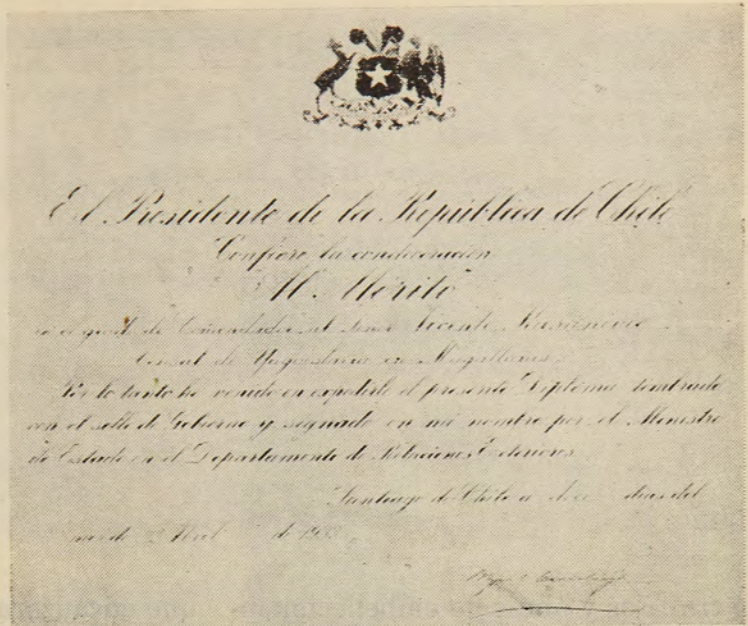 El Presidente de la República de Chile
Confiere la condecoración
"Al Mérito"
en el grado de Comendador al señor Vicente
Consul de Yugoslavia en Magallanes.
Por lo tanto he venido en expedirle el presente Diploma timbrado
con el sello de Gobierno y signado en mi nombre por el Ministro
de Estado en el Departamento de Relaciones Exteriores.
Santiago de Chile a doce días del
mes de Abril de